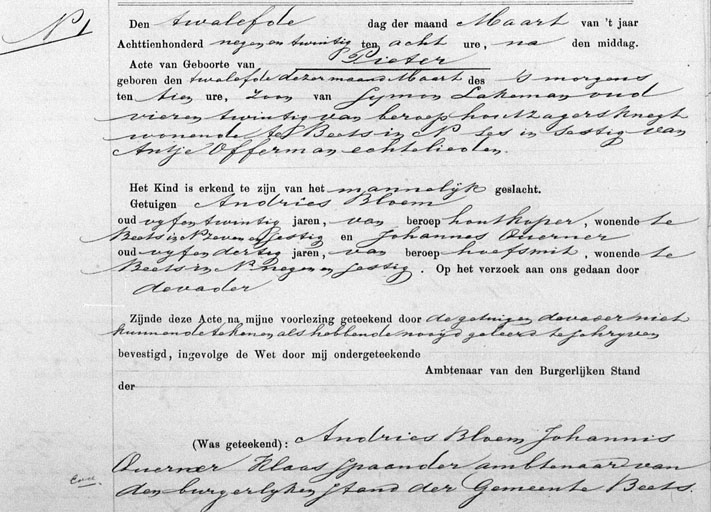 N 1
Den twalefde dag der maand Maart van 't jaar
Achttienhonderd negen en twintig ten acht ure, na den middag.
Acte van Geboorte van Pieter
geboren den twalefde dezer maand Maart des 's morgens
ten tien ure, Zoon van Symon Lakeman oud
vier en twintig van beroep houtzagersknegt
wonende te Beets in N Ses in Sestig van
Antje Offerman echtelieden.
Het Kind is erkend te zijn van het mannelyk geslacht.
Getuigen Andries Bloem
oud vyf en twintig jaren, van beroep houtkoper, wonende te
Beets in N zeven en Sestig en Johannes Querner
oud vyf en dertig jaren, van beroep hoefsmit, wonende te
Beets in N negen en Sestig. Op het verzoek aan ons gedaan door
de vader
Zijnde deze Acte na mijne voorlezing geteekend door de getuigen de vader niet
kunnende tekenen als hebbende nooyd geleerd te schryven
bevestigd, ingevolge de Wet door mij ondergeteekende
Ambtenaar van den Burgerlijken Stand
der
(Was geteekend): Andries Bloem Johannis
Querner Klaas Spaander ambtenaar van
den burgerlyken Stand der Gemeente Beets.